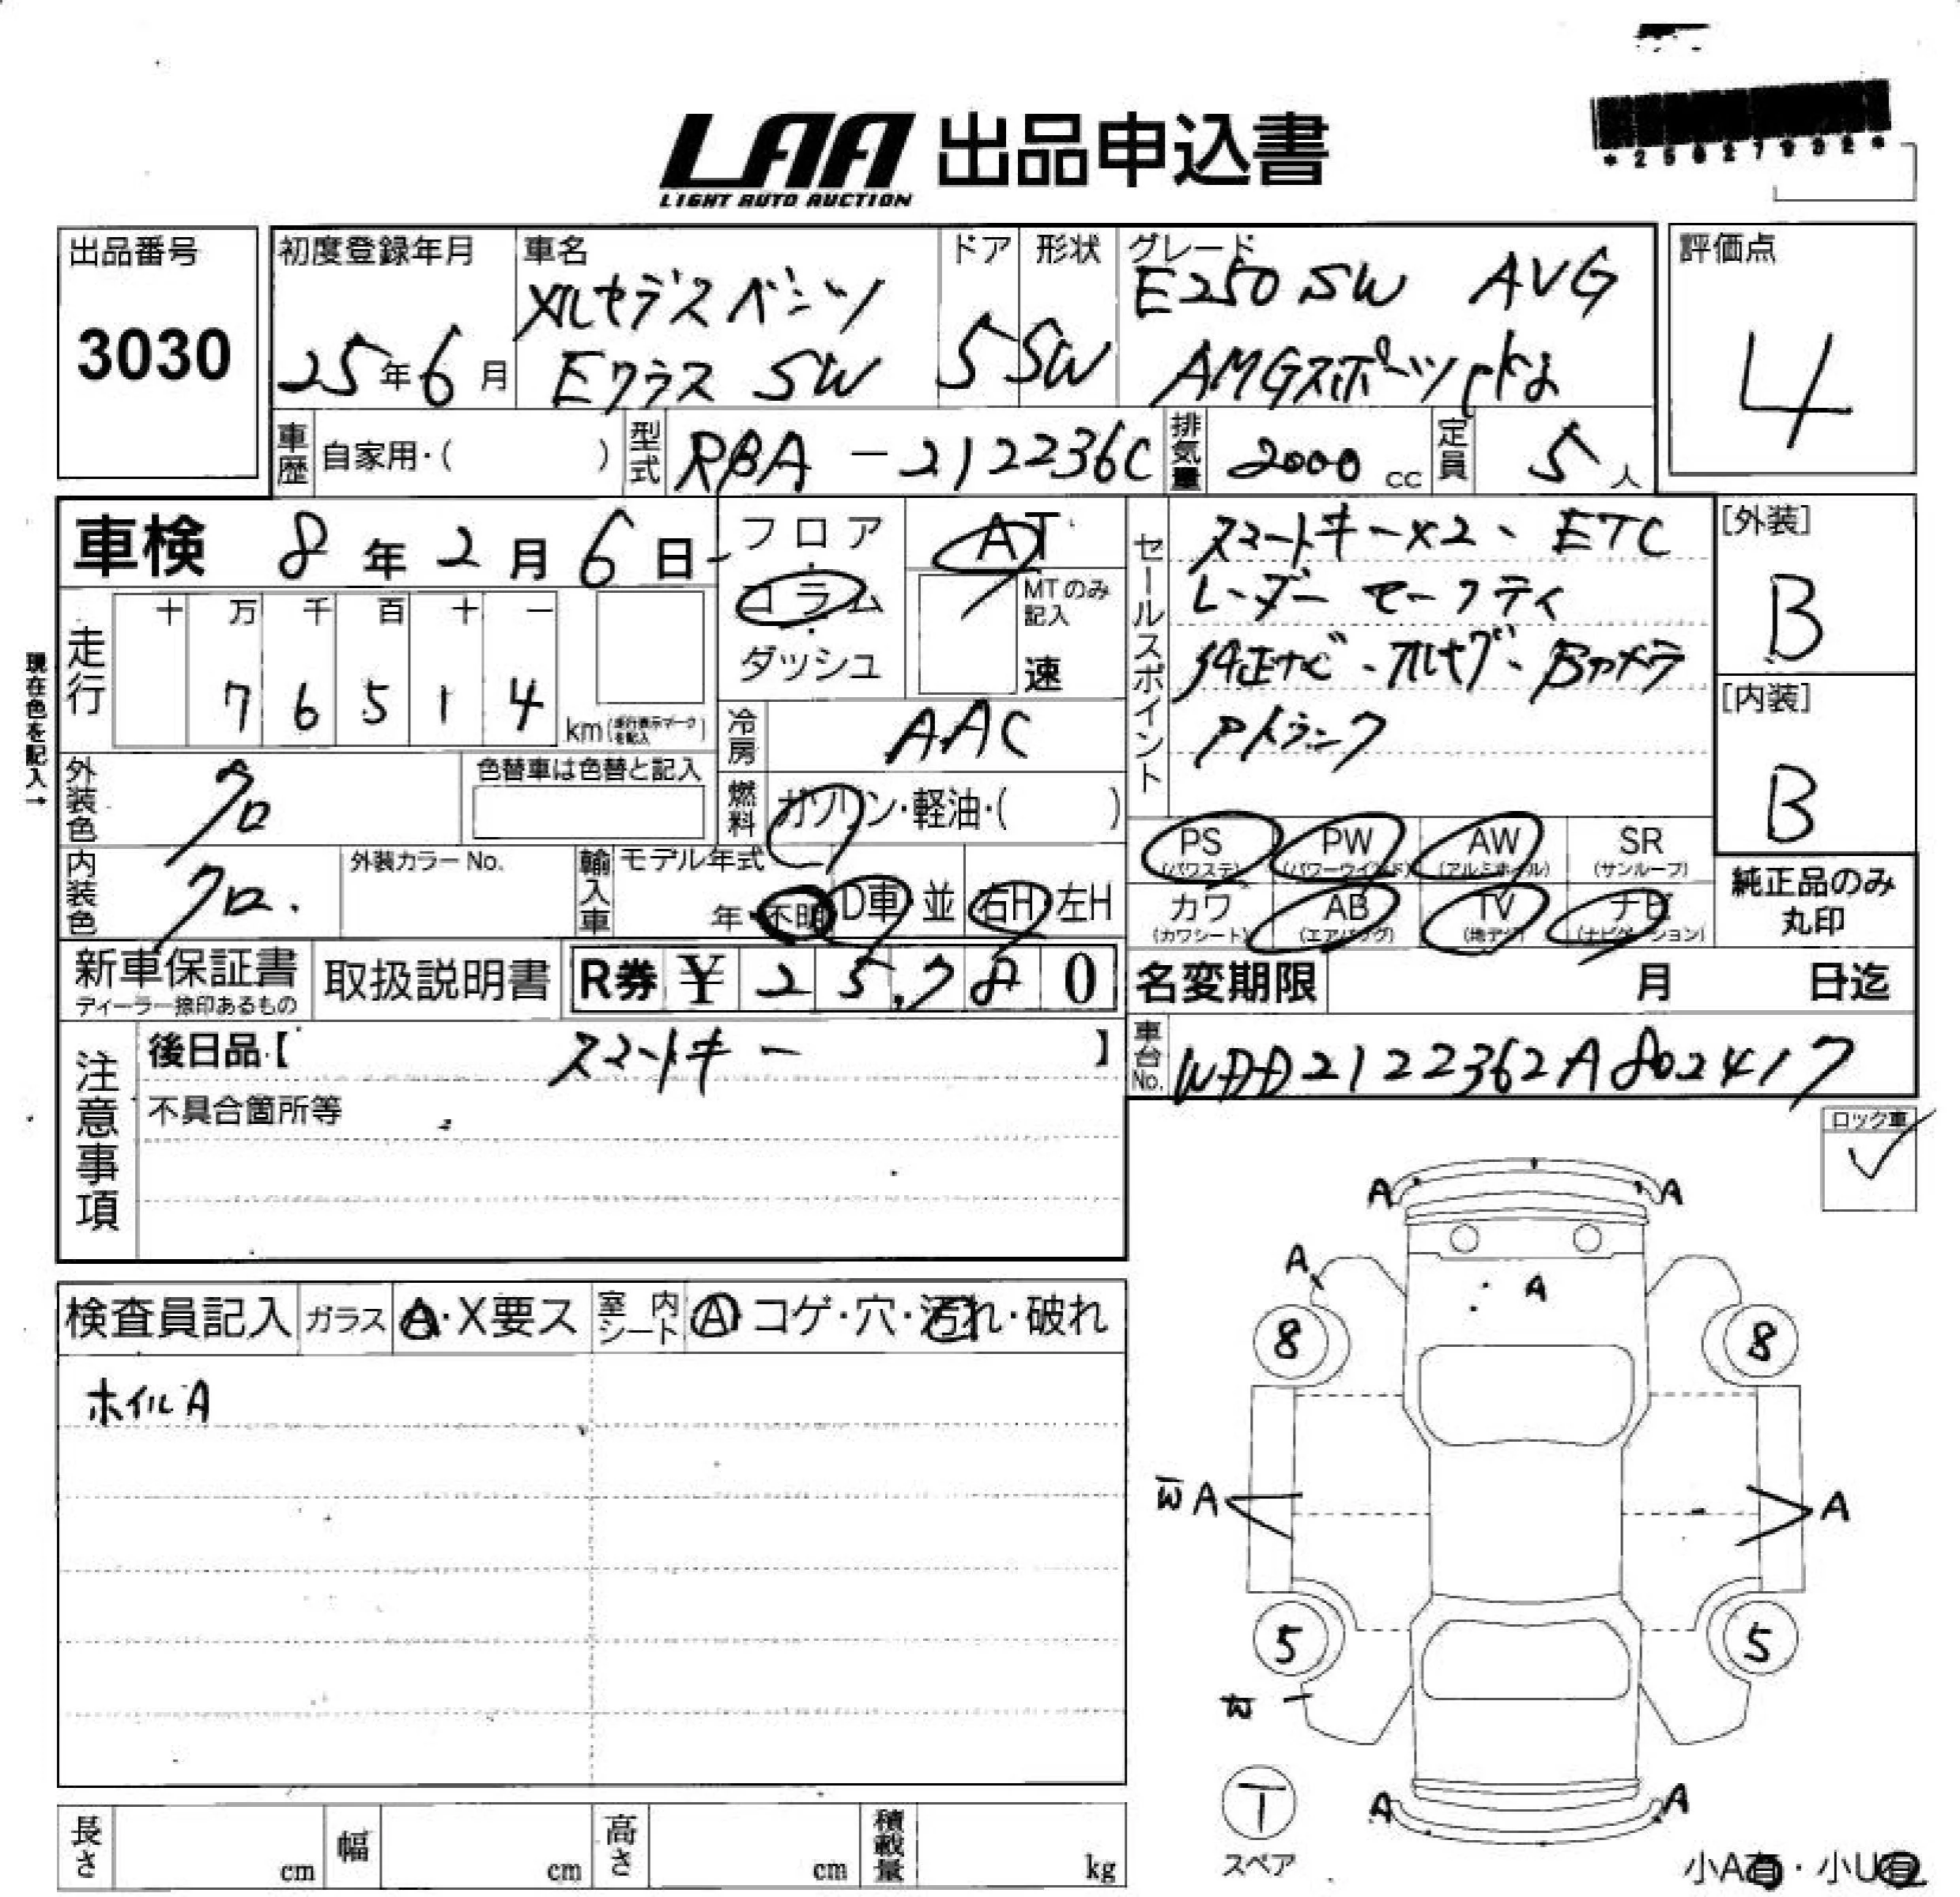 LAA 出品申込書
LIGHT AUTO AUCTION
*25027932*
出品番号
3030
初度登録年月
25年6月
車名
メルセデスベンツ
Eクラス SW
ドア
5
形状
SW
グレード
E250 SW AVG
AMGスポーツPKG
評価点
4
車歴 自家用・( )
型式 RBA-212236C
排気量 2000 cc
定員 5人
車検 8年2月6日
フロア
コラム
ダッシュ
AT
MTのみ記入
速
現在色を記入→
走行
十 万 千 百 十 一
7 6 5 1 4
km(走行表示マークを記入)
冷房 AAC
外装色 クロ
色替車は色替と記入
燃料 ガソリン・軽油・( )
内装色 クロ.
外装カラーNo.
輸入車
モデル年式
年・不明
D車・並
右H・左H
セールスポイント
スマートキー×2、ETC
レーダーセーフティ
純正ナビ・フルセグ・Bカメラ
Pトランク
[外装]
B
[内装]
B
PS
(パワステ)
PW
(パワーウインド)
AW
(アルミホイル)
SR
(サンルーフ)
カワ
(カワシート)
AB
(エアバッグ)
TV
(地デジ)
ナビ
(ナビゲーション)
純正品のみ
丸印
新車保証書
ディーラー捺印あるもの
取扱説明書
R券 ¥ 25,780
名変期限 月 日迄
注意事項
後日品【 スマートキー 】
不具合箇所等
車台No. WDD2122362A802417
ロック車
✓
検査員記入
ガラス A・X要ス
室内シート A・コゲ・穴・汚れ・破れ
ホイルA
A A
A
A
8 8
W A
A
5 5
W
A A
T
スペア
小A有・小U有
長さ cm
幅 cm
高さ cm
積載量 kg